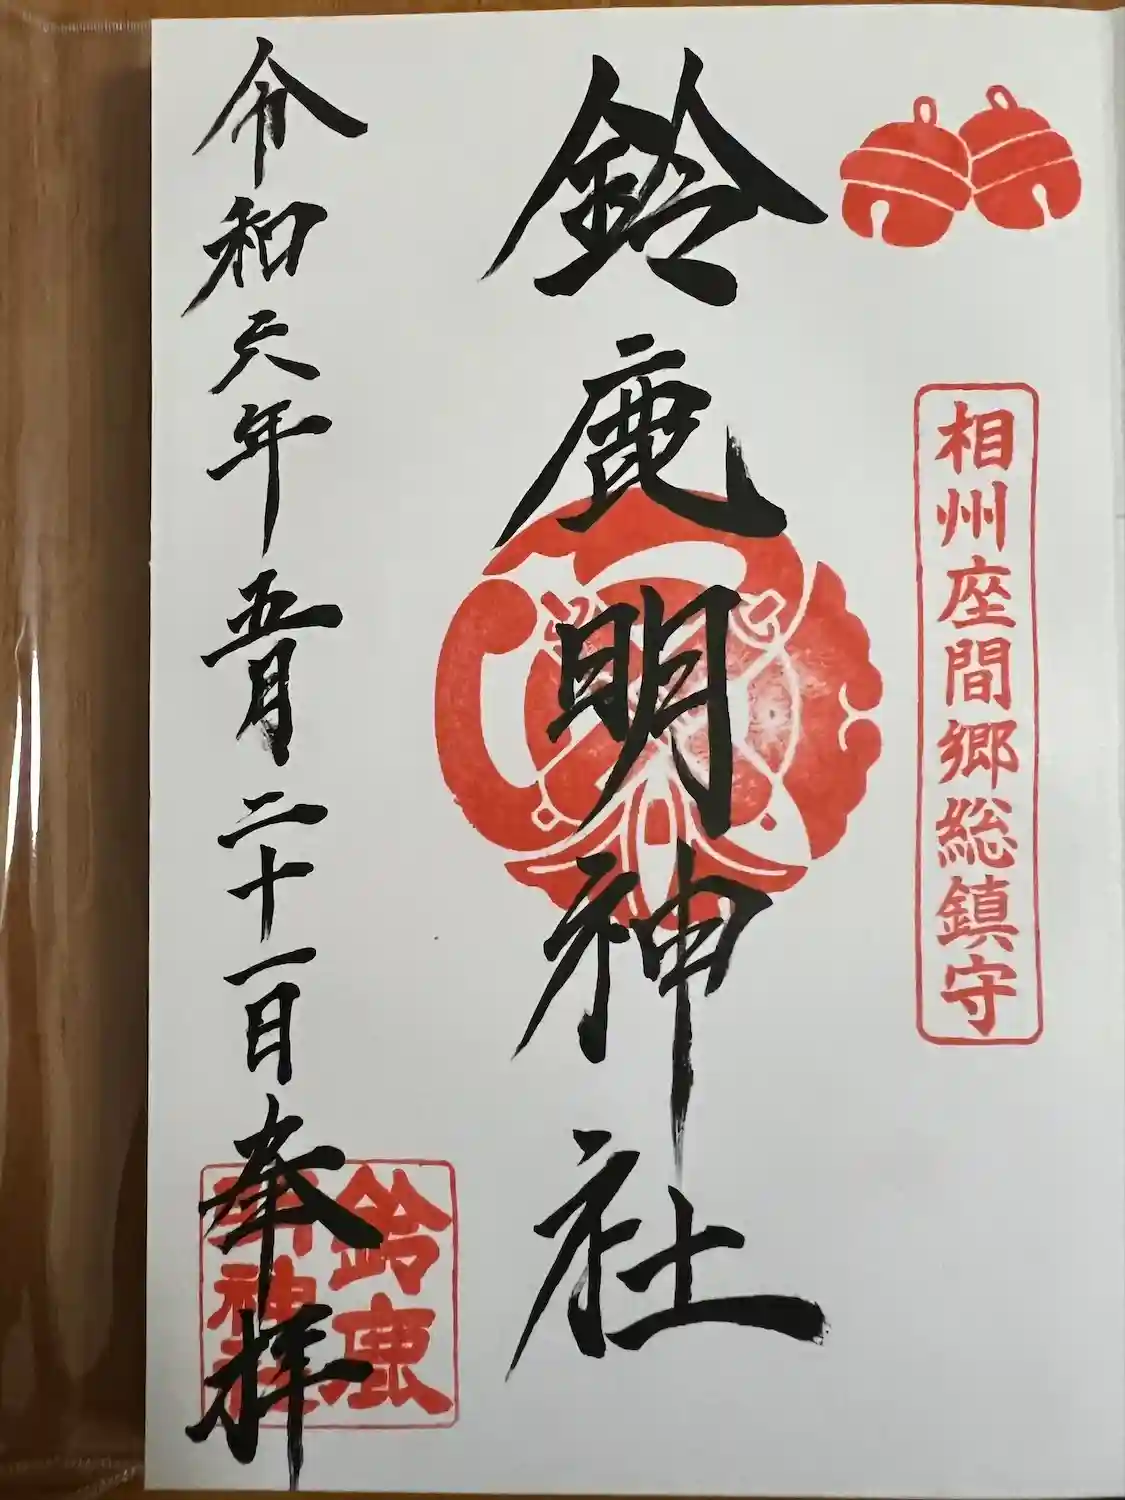 相州座間郷総鎮守
鈴鹿明神社
令和元年五月二十一日奉拝
鈴鹿
明神社